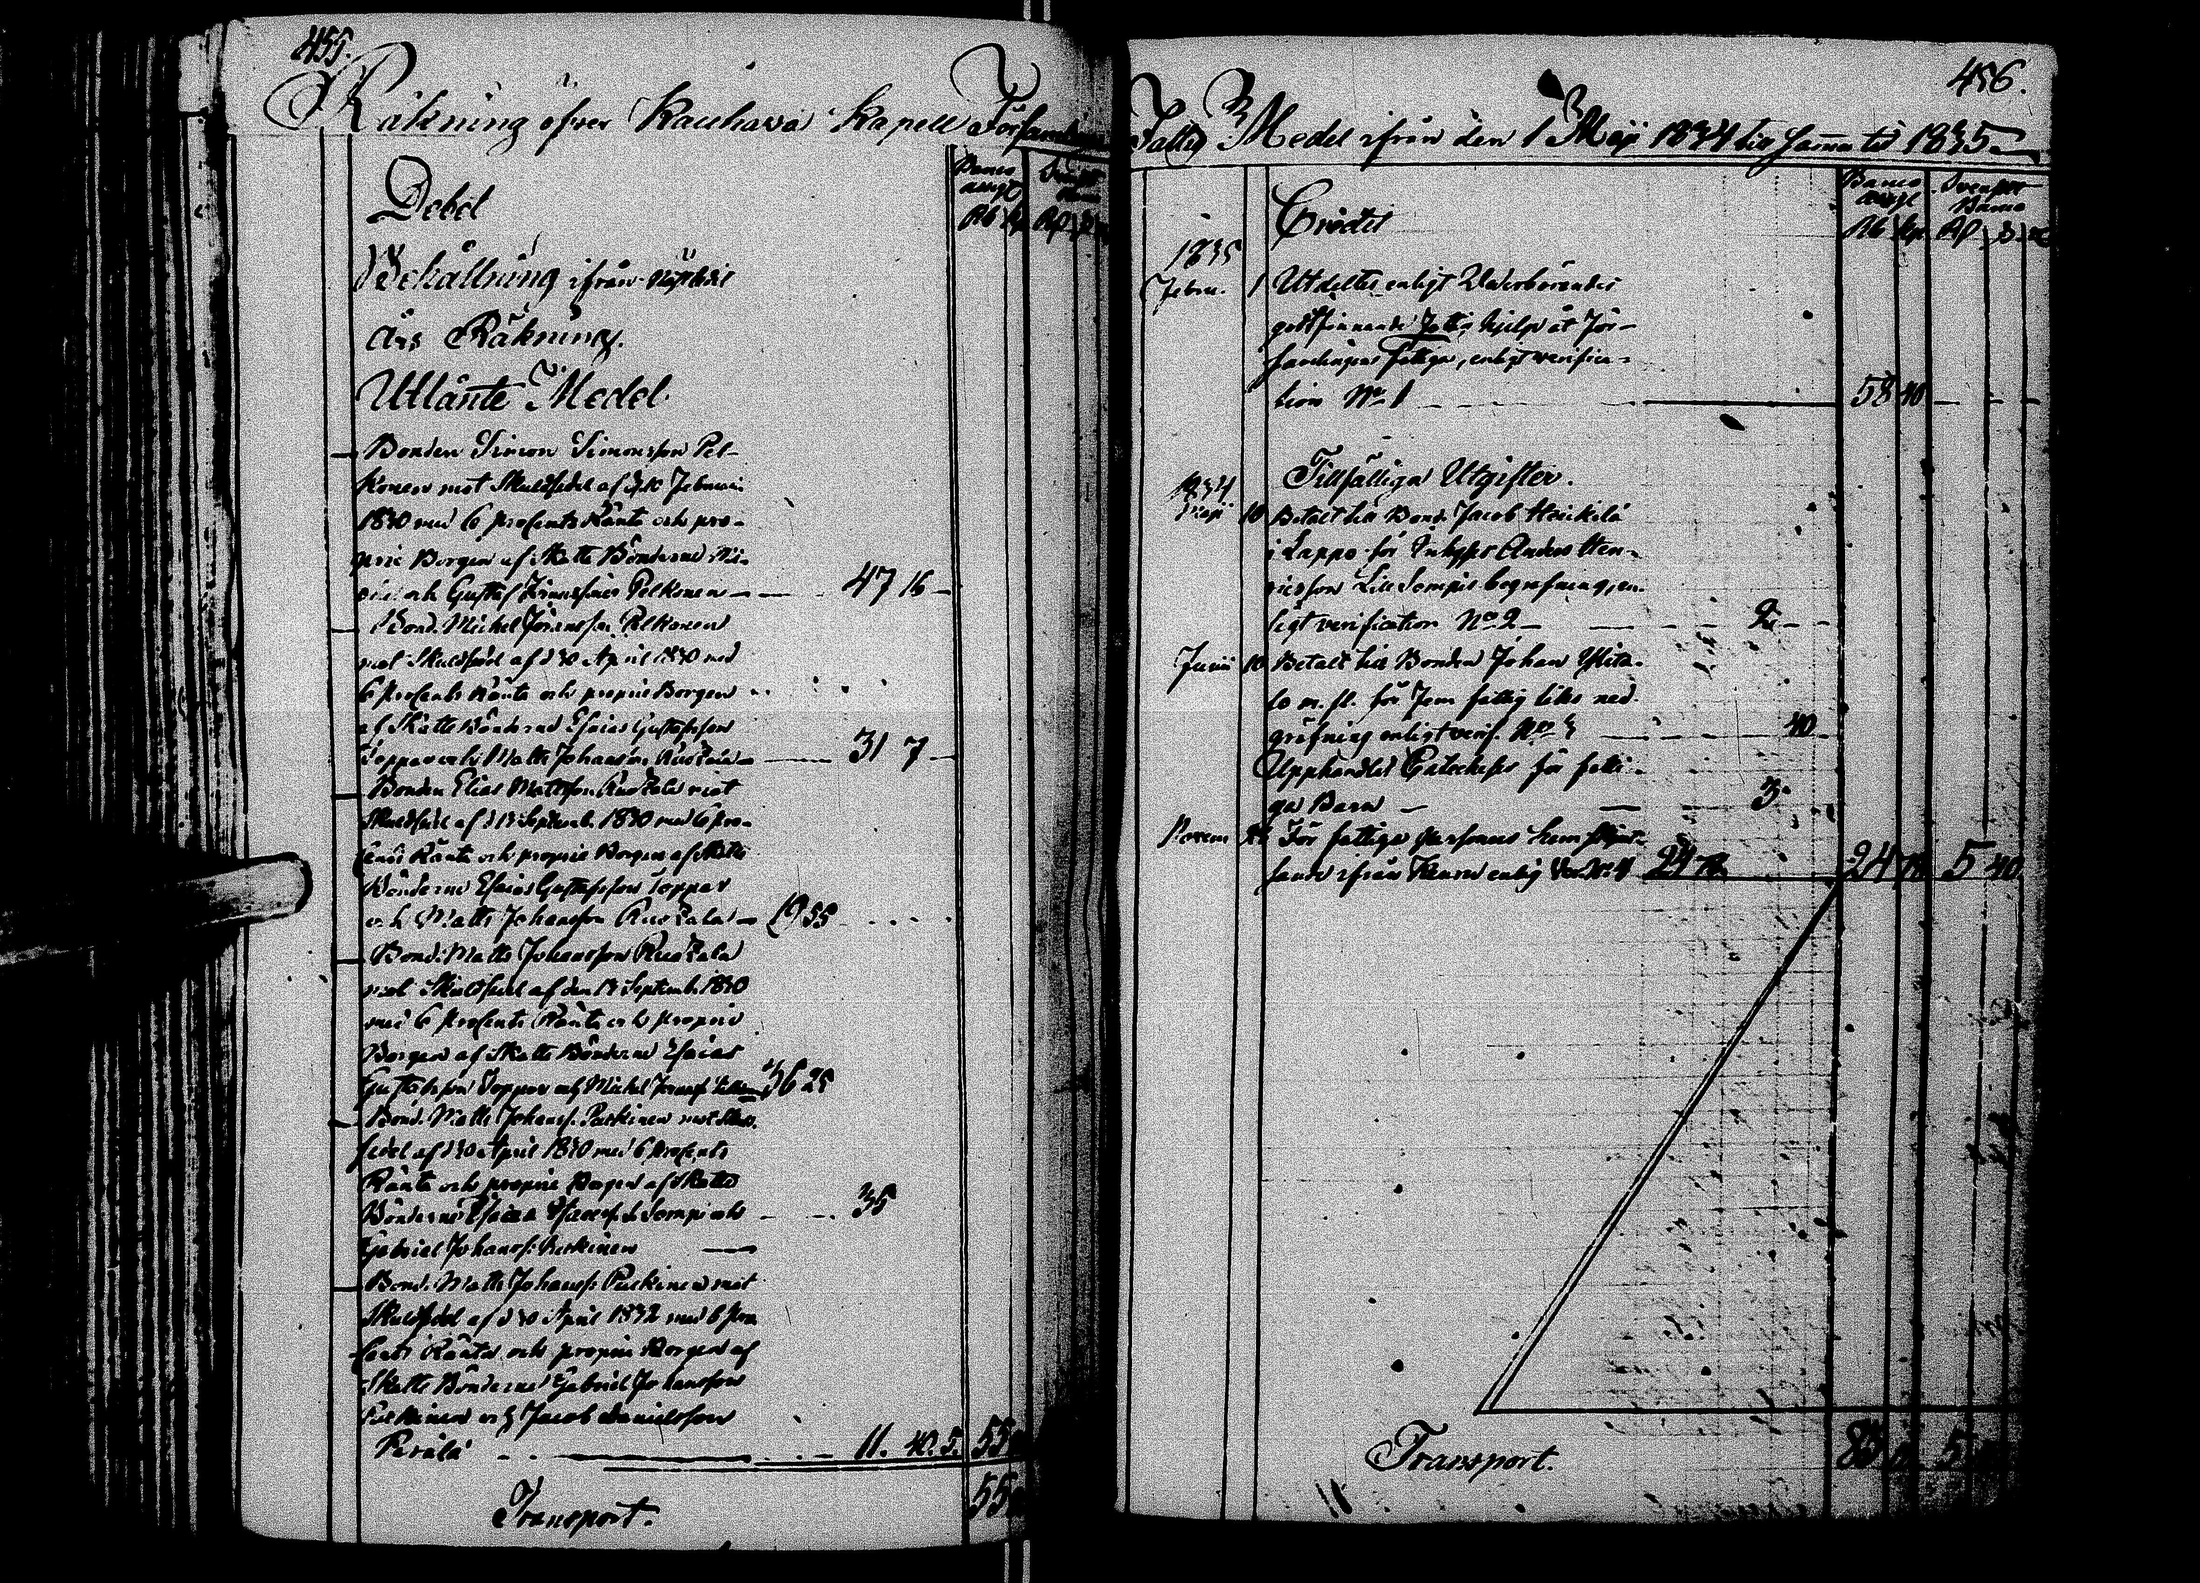 455.
Räkning öfver Kauhava Kapell Församlings
Debet
Banco assgt
Rb kp Rd s
Behållning ifrån sistledit
års Räkning.
Utlänte Medel.
Bonden Simon Simonsson Pel-
konen mot Skuldsedel af d. 30 Februari
1830 med 6 procents Ränta och pro-
prie Borgen af Skatte Bönderne
och Gustaf Pelkonen 47 16
Bond. Michel Pelkonen
mot Skuldsedel af d 30 April 1830 med
6 procents Ränta och proprie Borgen
af Skatte Bönderne Esaias Gustafsson
Toppar och Matts Johansson Ruotsala 31 7
Bonden Elias Mattsson Ruotsala mot
Skuldsedel af d 13 Septemb. 1830 med 6 pro-
cents Ränta och proprie Borgen af Skatte
Bönderne Esaias Gustafsson Toppar
och Matts Johansson Ruotsala 19 55
Bond. Matts Johansson Ruotsala
mot Skuldsedel af den 13 Septemb. 1830
med 6 procents Ränta och proprie
Borgen af Skatte Bönderne Esaias
Gustafsson Toppar och Michel 36 25
Bond. Matts Johanss. Puskinen mot Skuld-
sedel af d 30 April 1830 med 6 procents
Ränta och proprie Borgen af Skatte
Bönderne Esaias Sompi och 35
Gabriel Johanss: Puskinen
Bond. Matts Johanss: Puskinen mot
Skuldsedel af d 30 April 1832 med 6 pro-
cents Ränta och proprie Borgen af
Skatte Bönderne Gabriel Johansson
Puskinen och Jacob Danielsson
Perälä 11. 40. 5. 55
Transport. 55
456.
Fattig Medel ifrån den 1 Maji 1834 till samma tid 1835
Credit
Banco assgt Svenskt Banco
Rb kp Rd s
1835
Febru. 1 Utdeltes enligt Vederbörandes
godtfinnande Fattig hjelp åt För-
samlingens Fattige, enligt verifica-
tion No 1 58 40
Tillfällige Utgifter.
1834
Maji 10 Betalt till Bond. Jacob Heikilä
i Lappo för Inhyses Anders Hen-
ricsson Lill Sompis begrafning, en-
ligt verification No 2 2
Junii 10 Betalt till Bonden Johan Ylita-
lo m. fl. för Fem fattig liks ned-
gräfning enligt verif. No 3 40
Upphandlat Catecheser för fatti-
ga Barn 3
Novem 24 För fattige personers hem
ifrån enlig Ver. No 4 24 72 24 72 5 40
Transport. 83 5